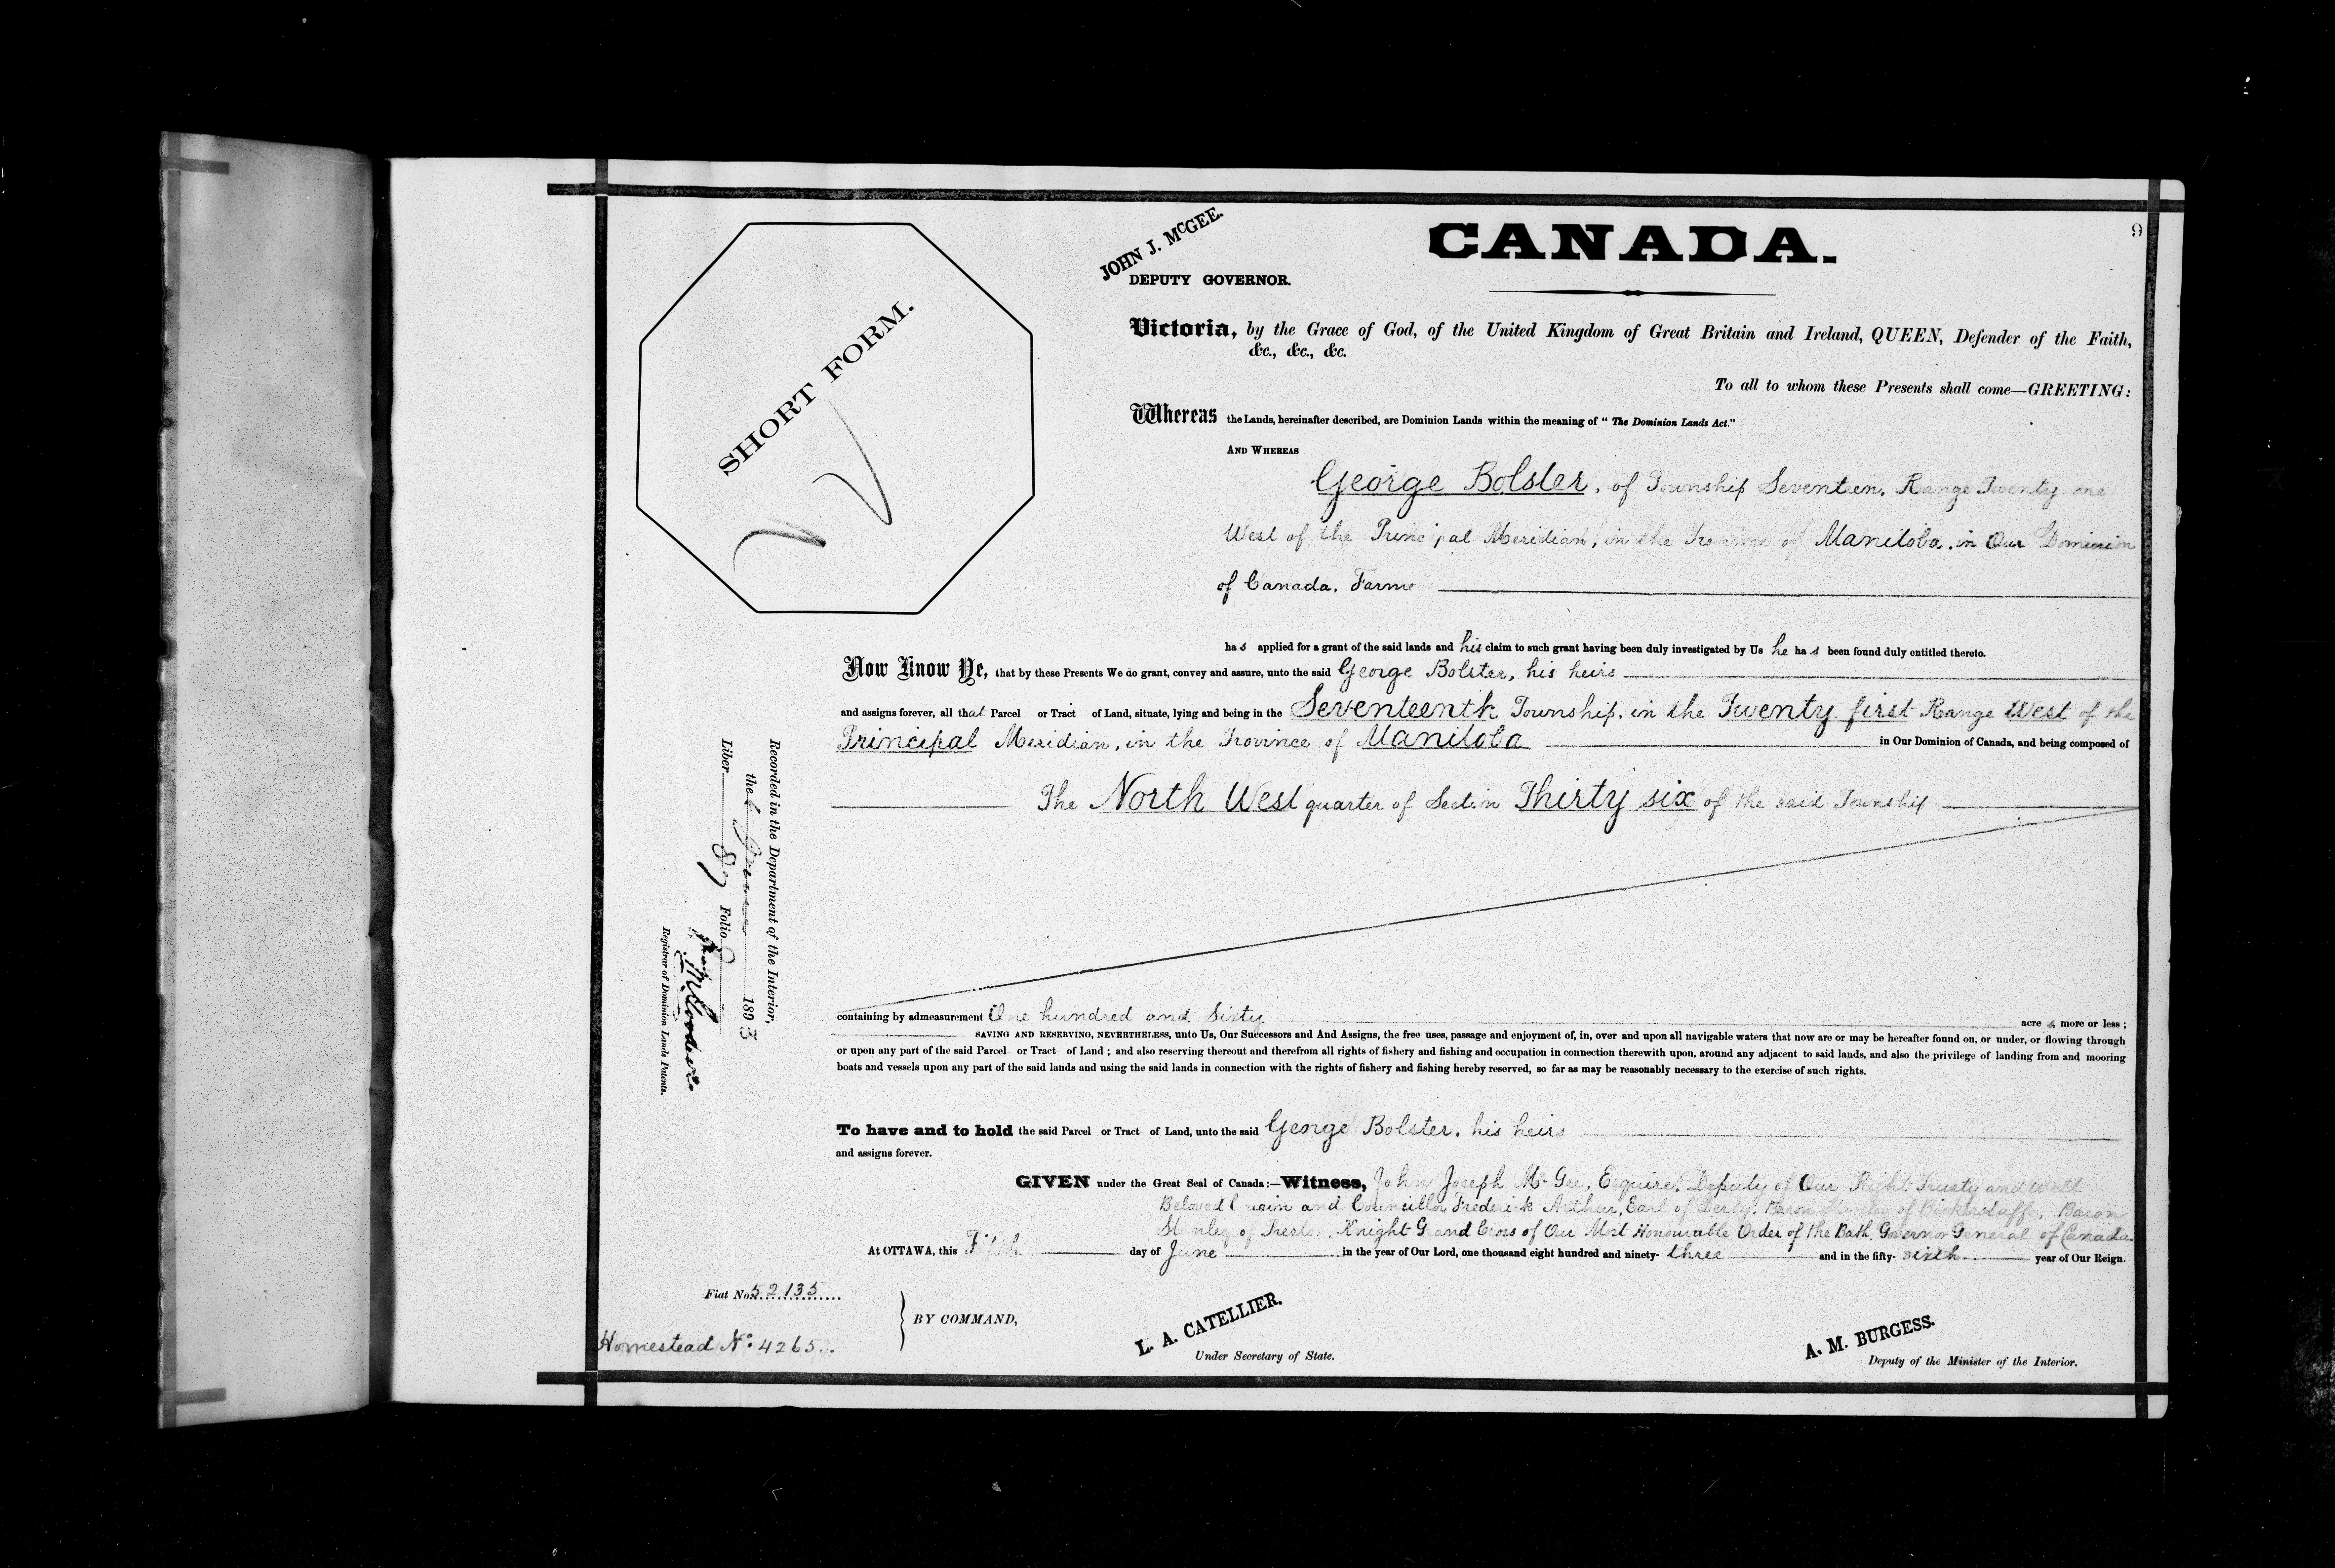 9
JOHN J. McGEE.
DEPUTY GOVERNOR.
CANADA.
SHORT FORM.
Victoria, by the Grace of God, of the United Kingdom of Great Britain and Ireland, QUEEN, Defender of the Faith,
&c., &c., &c.
To all to whom these Presents shall come—GREETING:
Whereas the Lands, hereinafter described, are Dominion Lands within the meaning of "The Dominion Lands Act."
AND WHEREAS
George Bolster, of Township Seventeen, Range Twenty one
West of the Principal Meridian, in the Province of Manitoba, in Our Dominion
of Canada, Farme
has applied for a grant of the said lands and his claim to such grant having been duly investigated by Us he has been found duly entitled thereto.
Now Know Ye, that by these Presents We do grant, convey and assure, unto the said George Bolster, his heirs
and assigns forever, all that Parcel or Tract of Land, situate, lying and being in the Seventeenth Township, in the Twenty first Range West of the
Principal Meridian, in the Province of Manitoba in Our Dominion of Canada, and being composed of
The North West quarter of Section Thirty six of the said Township
containing by admeasurement One hundred and Sixty acres more or less;
SAVING AND RESERVING, NEVERTHELESS, unto Us, Our Successors and And Assigns, the free uses, passage and enjoyment of, in, over and upon all navigable waters that now are or may be hereafter found on, or under, or flowing through
or upon any part of the said Parcel or Tract of Land; and also reserving thereout and therefrom all rights of fishery and fishing and occupation in connection therewith upon, around any adjacent to said lands, and also the privilege of landing from and mooring
boats and vessels upon any part of the said lands and using the said lands in connection with the rights of fishery and fishing hereby reserved, so far as may be reasonably necessary to the exercise of such rights.
To have and to hold the said Parcel or Tract of Land, unto the said George Bolster, his heirs
and assigns forever.
GIVEN under the Great Seal of Canada:—Witness, John Joseph McGee, Esquire, Deputy of Our Right Trusty and Well
Beloved Cousin and Councillor Frederick Arthur, Earl of Derby, Baron Stanley of Bickerstaffe, Baron
Stanley of Preston, Knight Grand Cross of Our Most Honourable Order of the Bath, Governor General of Canada.
At OTTAWA, this Fifth day of June in the year of Our Lord, one thousand eight hundred and ninety-three and in the fifty-sixth year of Our Reign.
Fiat No. 52135
Homestead No. 4265
BY COMMAND,
L. A. CATELLIER.
Under Secretary of State.
A. M. BURGESS.
Deputy of the Minister of the Interior.
Recorded in the Department of the Interior,
the 6 June 1893
Liber 87 Folio 9
Registrar of Dominion Lands Patents.